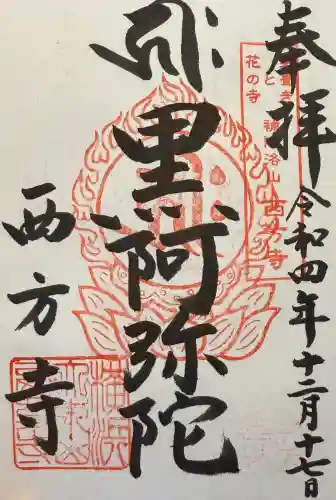 奉拝
令和四年十二月十七日
洛山 西方寺
花の寺
黒阿弥陀
西方寺